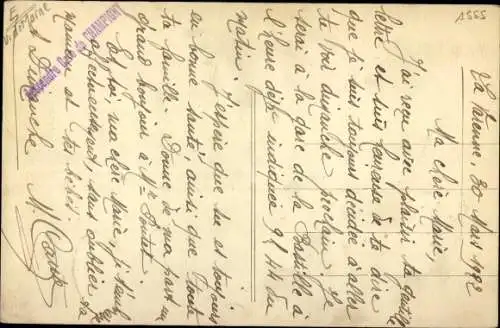 La Varenne, 30 Mars 1922
Ma chère Marie,
J'ai reçu avec plaisir ta gentille
lettre et suis heureuse de te dire
que je suis toujours décidée à aller
te voir dimanche prochain. Je
serai à la gare de la Bastille à
l'heure déjà indiquée 9h du
matin.
J'espère que tu es toujours
en bonne santé, ainsi que toute
ta famille. Donne de ma part un
grand bonjour à Mme
Et toi, ma chère Marie, je t'emb
affectueusement, sans oublier ta
maman et tes bébés.
à Dimanche
CHAMPIGNY